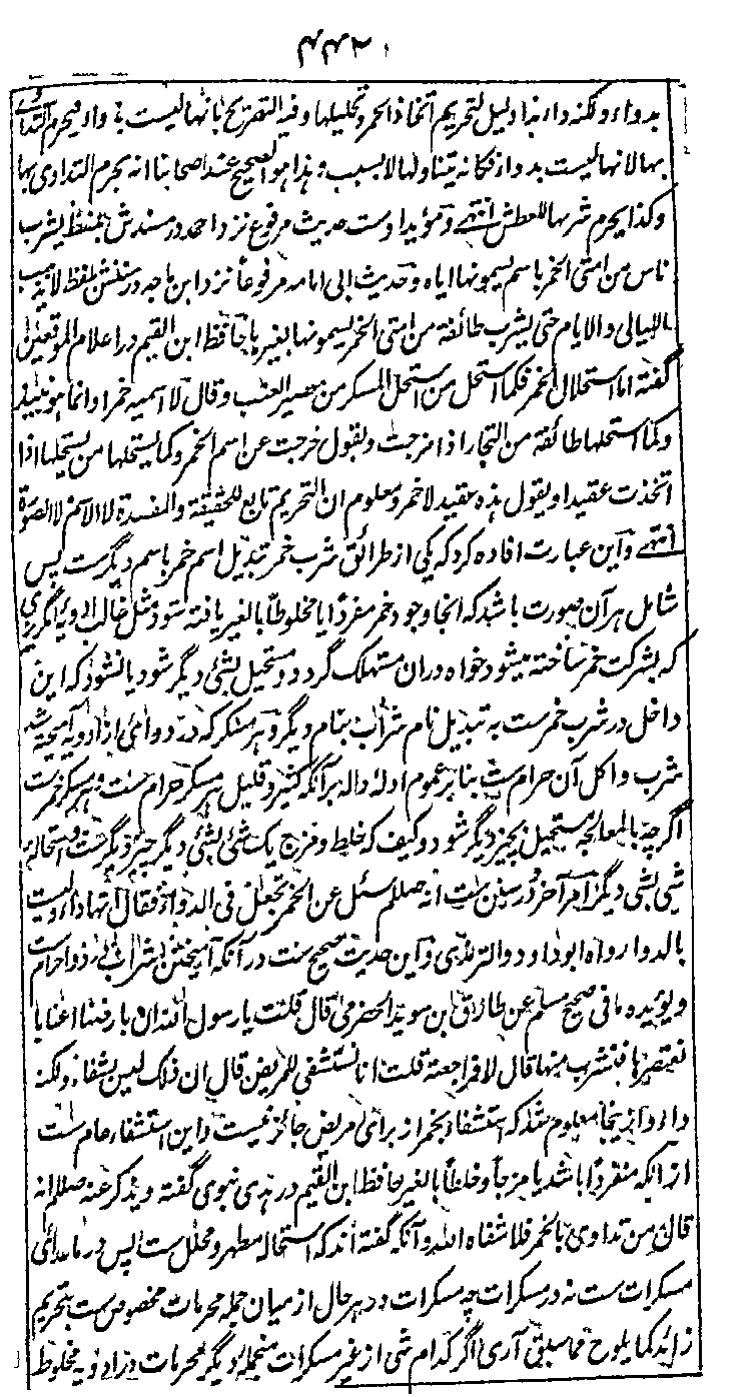 ۴۴۲
بدواء ولکنه داء هذا دلیل لتحریم اتخاذ الخمر وتحلیلها وفیه التصریح بانها لیست بدواء فیحرم التداوے
بها لانها لیست بدواء فکانه یتناولها لا بسبب وهذا هو الصحیح عند اصحابنا انه یحرم التداوی بها
وکذا یحرم شربها للعطش انتهے ومؤید اوست حدیث مرفوع نزد احمد در مسندش بلفظ یشرب
ناس من امتی الخمر باسم یسمونها ایاه وحدیث ابی امامه مرفوعاً نزد ابن ماجه در سننش بلفظ لا یذهب
اللیالی والایام حتی یشرب طائفة من امتی الخمر یسمونها بغیر حافظ ابن القیم در اعلام الموقعین
گفته اما استحلال الخمر فکما استحل من استحل المسکر من عصیر العنب وقال لا اسمیه خمرا وانما هو نبیذ
وکما استحلها طائفة من التجار اذا مزجت ویقول خرجت عن اسم الخمر وکما یستحلها من یستحلها اذا
اتخذت عقیدا ویقول هذه عقید لا خمر ومعلوم ان التحریم تابع للحقیقة والمفسدة لا الاسم لا الصورة
انتهے واین عبارت افاده کرد که یکی از طرائق شرب خمر تبدیل اسم خمر باسم دیگرست پس
شامل هر آن صورت باشد که آنجا وجود خمر مفرداً یا مخلوطاً بالغیر یافته شود مثل غالب ادویه انگریزی
که بشرکت خمر ساخته میشود خواه دران مستهلک گردد و مستحیل بشئ دیگر شود یا نشود که این
داخل در شرب خمرست به تبدیل نام شراب بنام دیگر وهر مسکر که در دوائی از ادویه آمیخته شد
شرب واکل آن حرام ست بنابر عموم ادله داله برآنکه کثیر وقلیل هر مسکر حرام ست وهر مسکر خمرست
اگرچه بالمعالجه مستحیل بچیز دیگر شود وکیف که خلط ومزج یک شئ بشئ دیگر چیز دیگرست واستحاله
شی بشی دیگر امر آخر در سنن ست انه صللم سئل عن الخمر تجعل فی الدواء فقال انها داء ولیست
بالدواء رواه ابوداود والترمذی واین حدیث صحیح ست در آنکه آمیختن شراب در دوا حرام ست
ویؤیده ما فی صحیح مسلم عن طارق ابن سوید الحضرمی قال قلت یا رسول الله ان بارضنا اعنابا
نعتصرها فنشرب منها قال لا فراجعته قلت انا نستشفی للمریض قال ان ذلک لیس بشفاء ولکنه
داء وازینجا معلوم شد که استشفاء بخمر از برائی مریض جائز نیست واین استشفاء عام ست
از آنکه منفرداً باشد یا مزجاً وخلطاً بالغیر حافظ ابن القیم در هدی نبوی گفته ویذکر عنه صللم انه
قال من تداوی بالخمر فلا شفاه الله وآنکه گفته اند که استحاله مطهر ومحلل ست پس در ماعدائی
مسکرات ست نه در مسکرات چه مسکرات در هر حال از میان جمله محرمات مخصوص ست بتحریم
زائد کما یلوح مما سبق آری اگر کدام شی از غیر مسکرات منجمله دیگر محرمات در ادویه مخلوط